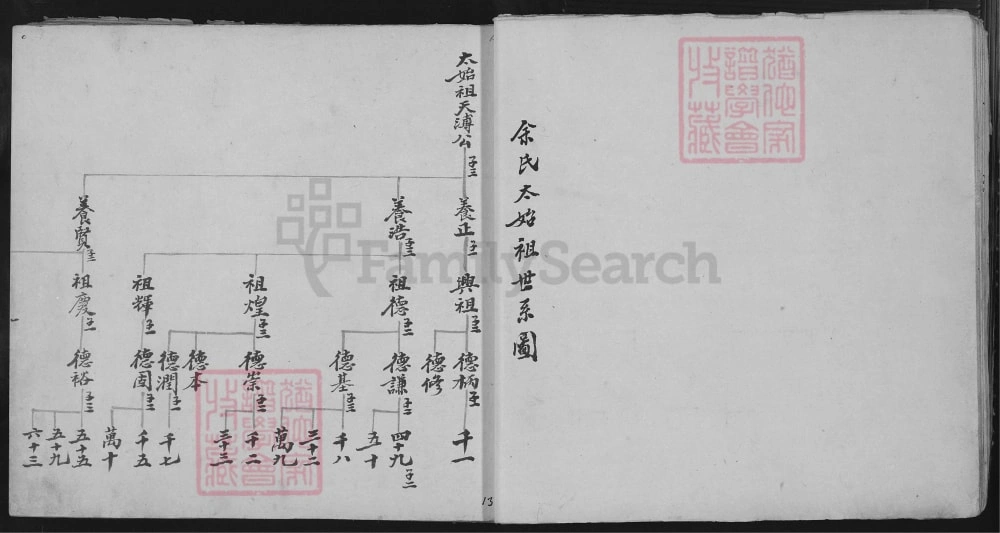 余氏太始祖世系圖
太始祖天溥公 子三
養正 子一
養浩 子三
養賢 子三
興祖 子二
祖德 子二
祖煌 子三
祖輝 子一
祖慶 子一
德柄 子一
德修
德謙 子二
德基 子三
德崇 子二
德本
德潤 子一
德固 子二
德裕 子三
千一
四十九 子二
五十
千八
三十二
萬九
千二
三十三
千七
千五
萬十
五十五
五十九
六十三
13
FamilySearch